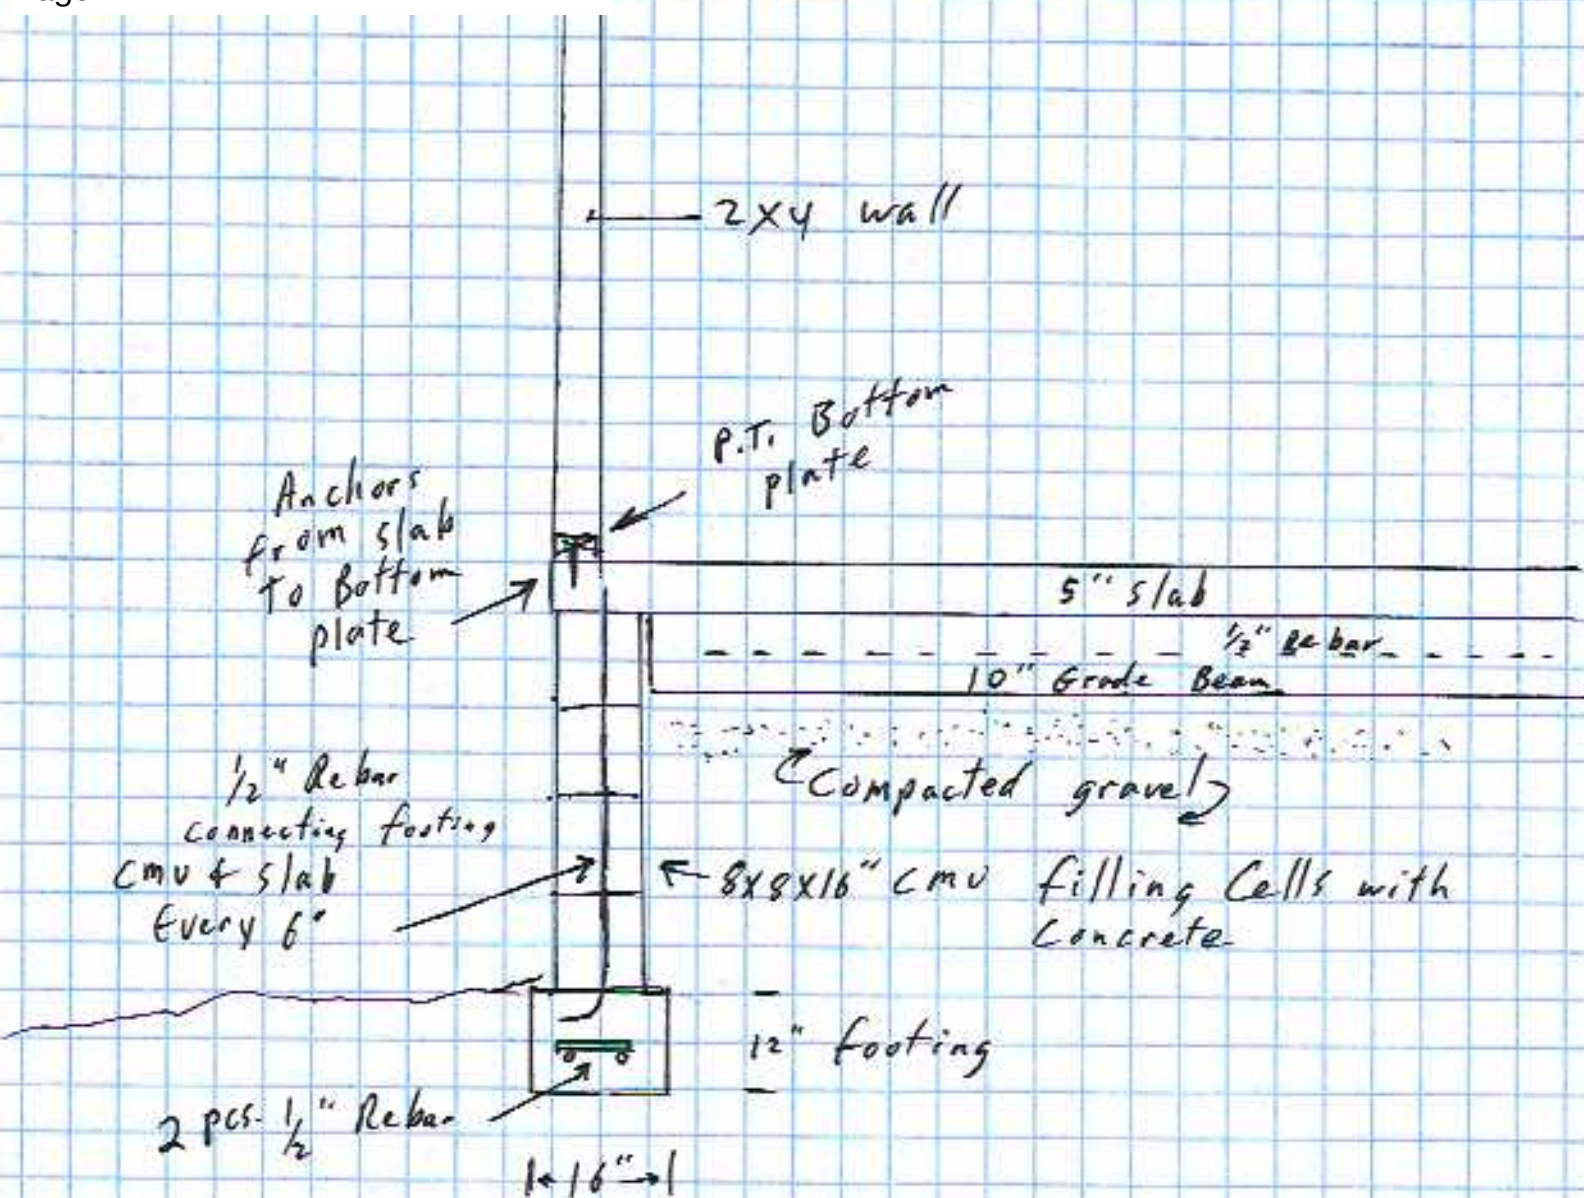 2x4 wall
P.T. Bottom
plate
Anchors
from slab
To Bottom
plate
5" slab
1/2" Rebar
10" Grade Beam
Compacted gravel
1/2" Rebar
connecting footing
CMU & slab
Every 6"
8x8x16" CMU filling Cells with
Concrete
12" footing
2 pcs. 1/2" Rebar
16"